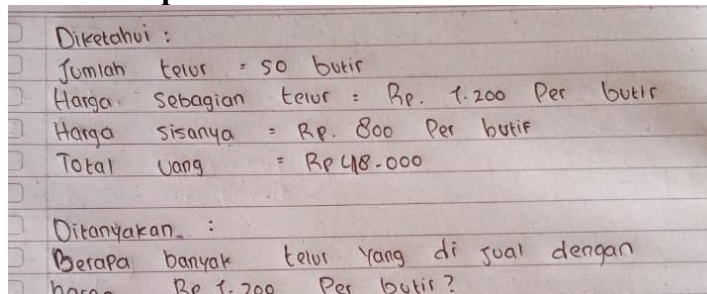 Diketahui :
Jumlah telur = 50 butir
Harga sebagian telur = Rp. 1.200 Per butir
Harga sisanya = Rp. 800 Per butir
Total uang = Rp 48.000
Ditanyakan :
Berapa banyak telur yang di jual dengan
harga Rp 1.200 Per butir?